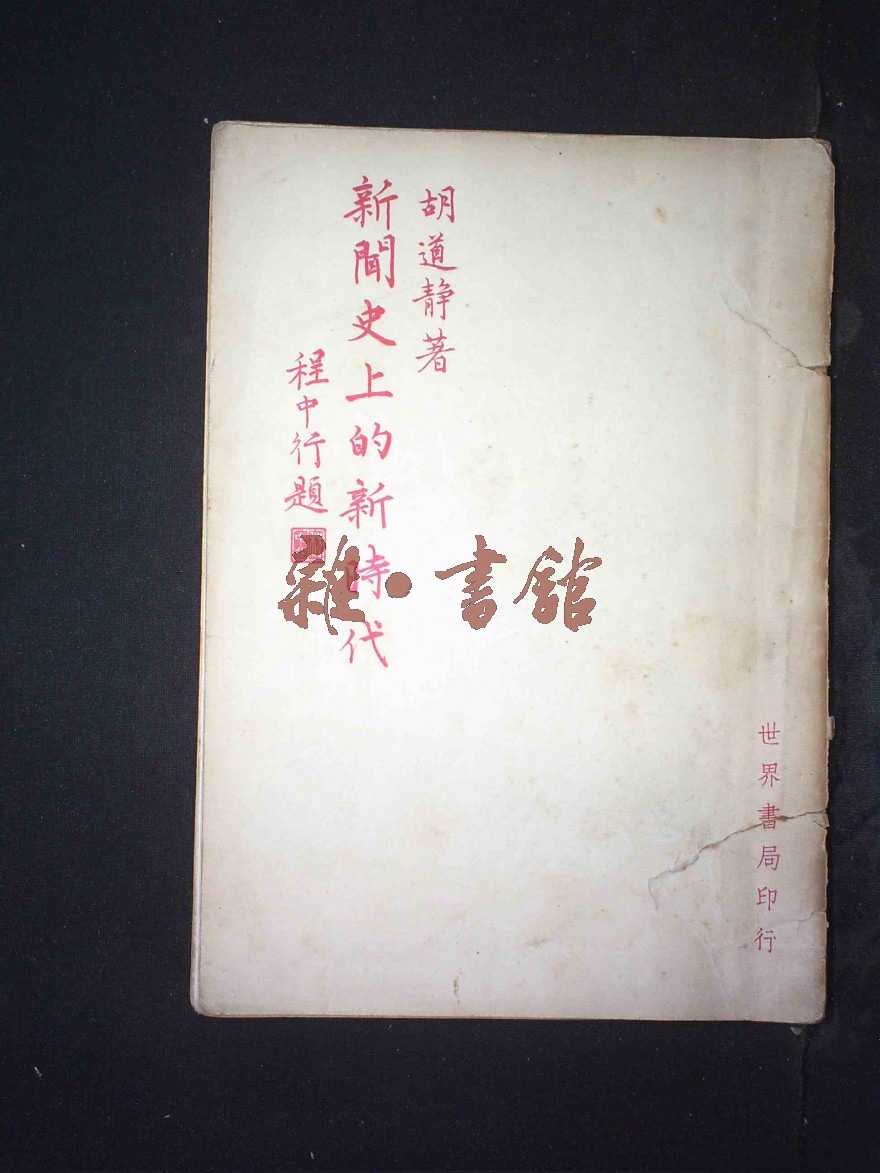 胡道静著
新聞史上的新時代
程中行題
世界書局印行
雜·書館